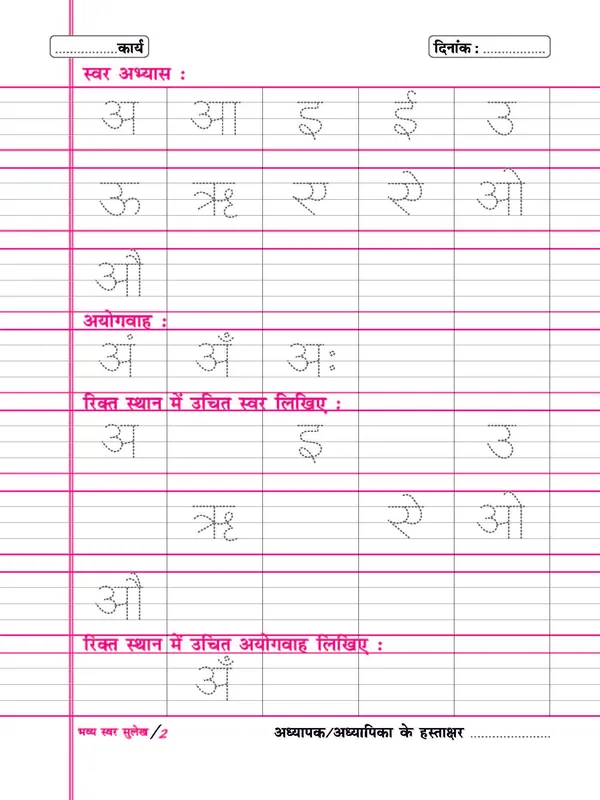 .................कार्य दिनांक : .................
स्वर अभ्यास :
अ आ इ ई उ
ऊ ऋ ए ऐ ओ
औ
अयोगवाह :
अं अँ अः
रिक्त स्थान में उचित स्वर लिखिए :
अ इ उ
ऋ ऐ ओ
औ
रिक्त स्थान में उचित अयोगवाह लिखिए :
अँ
भव्य स्वर सुलेख/2 अध्यापक/अध्यापिका के हस्ताक्षर ......................